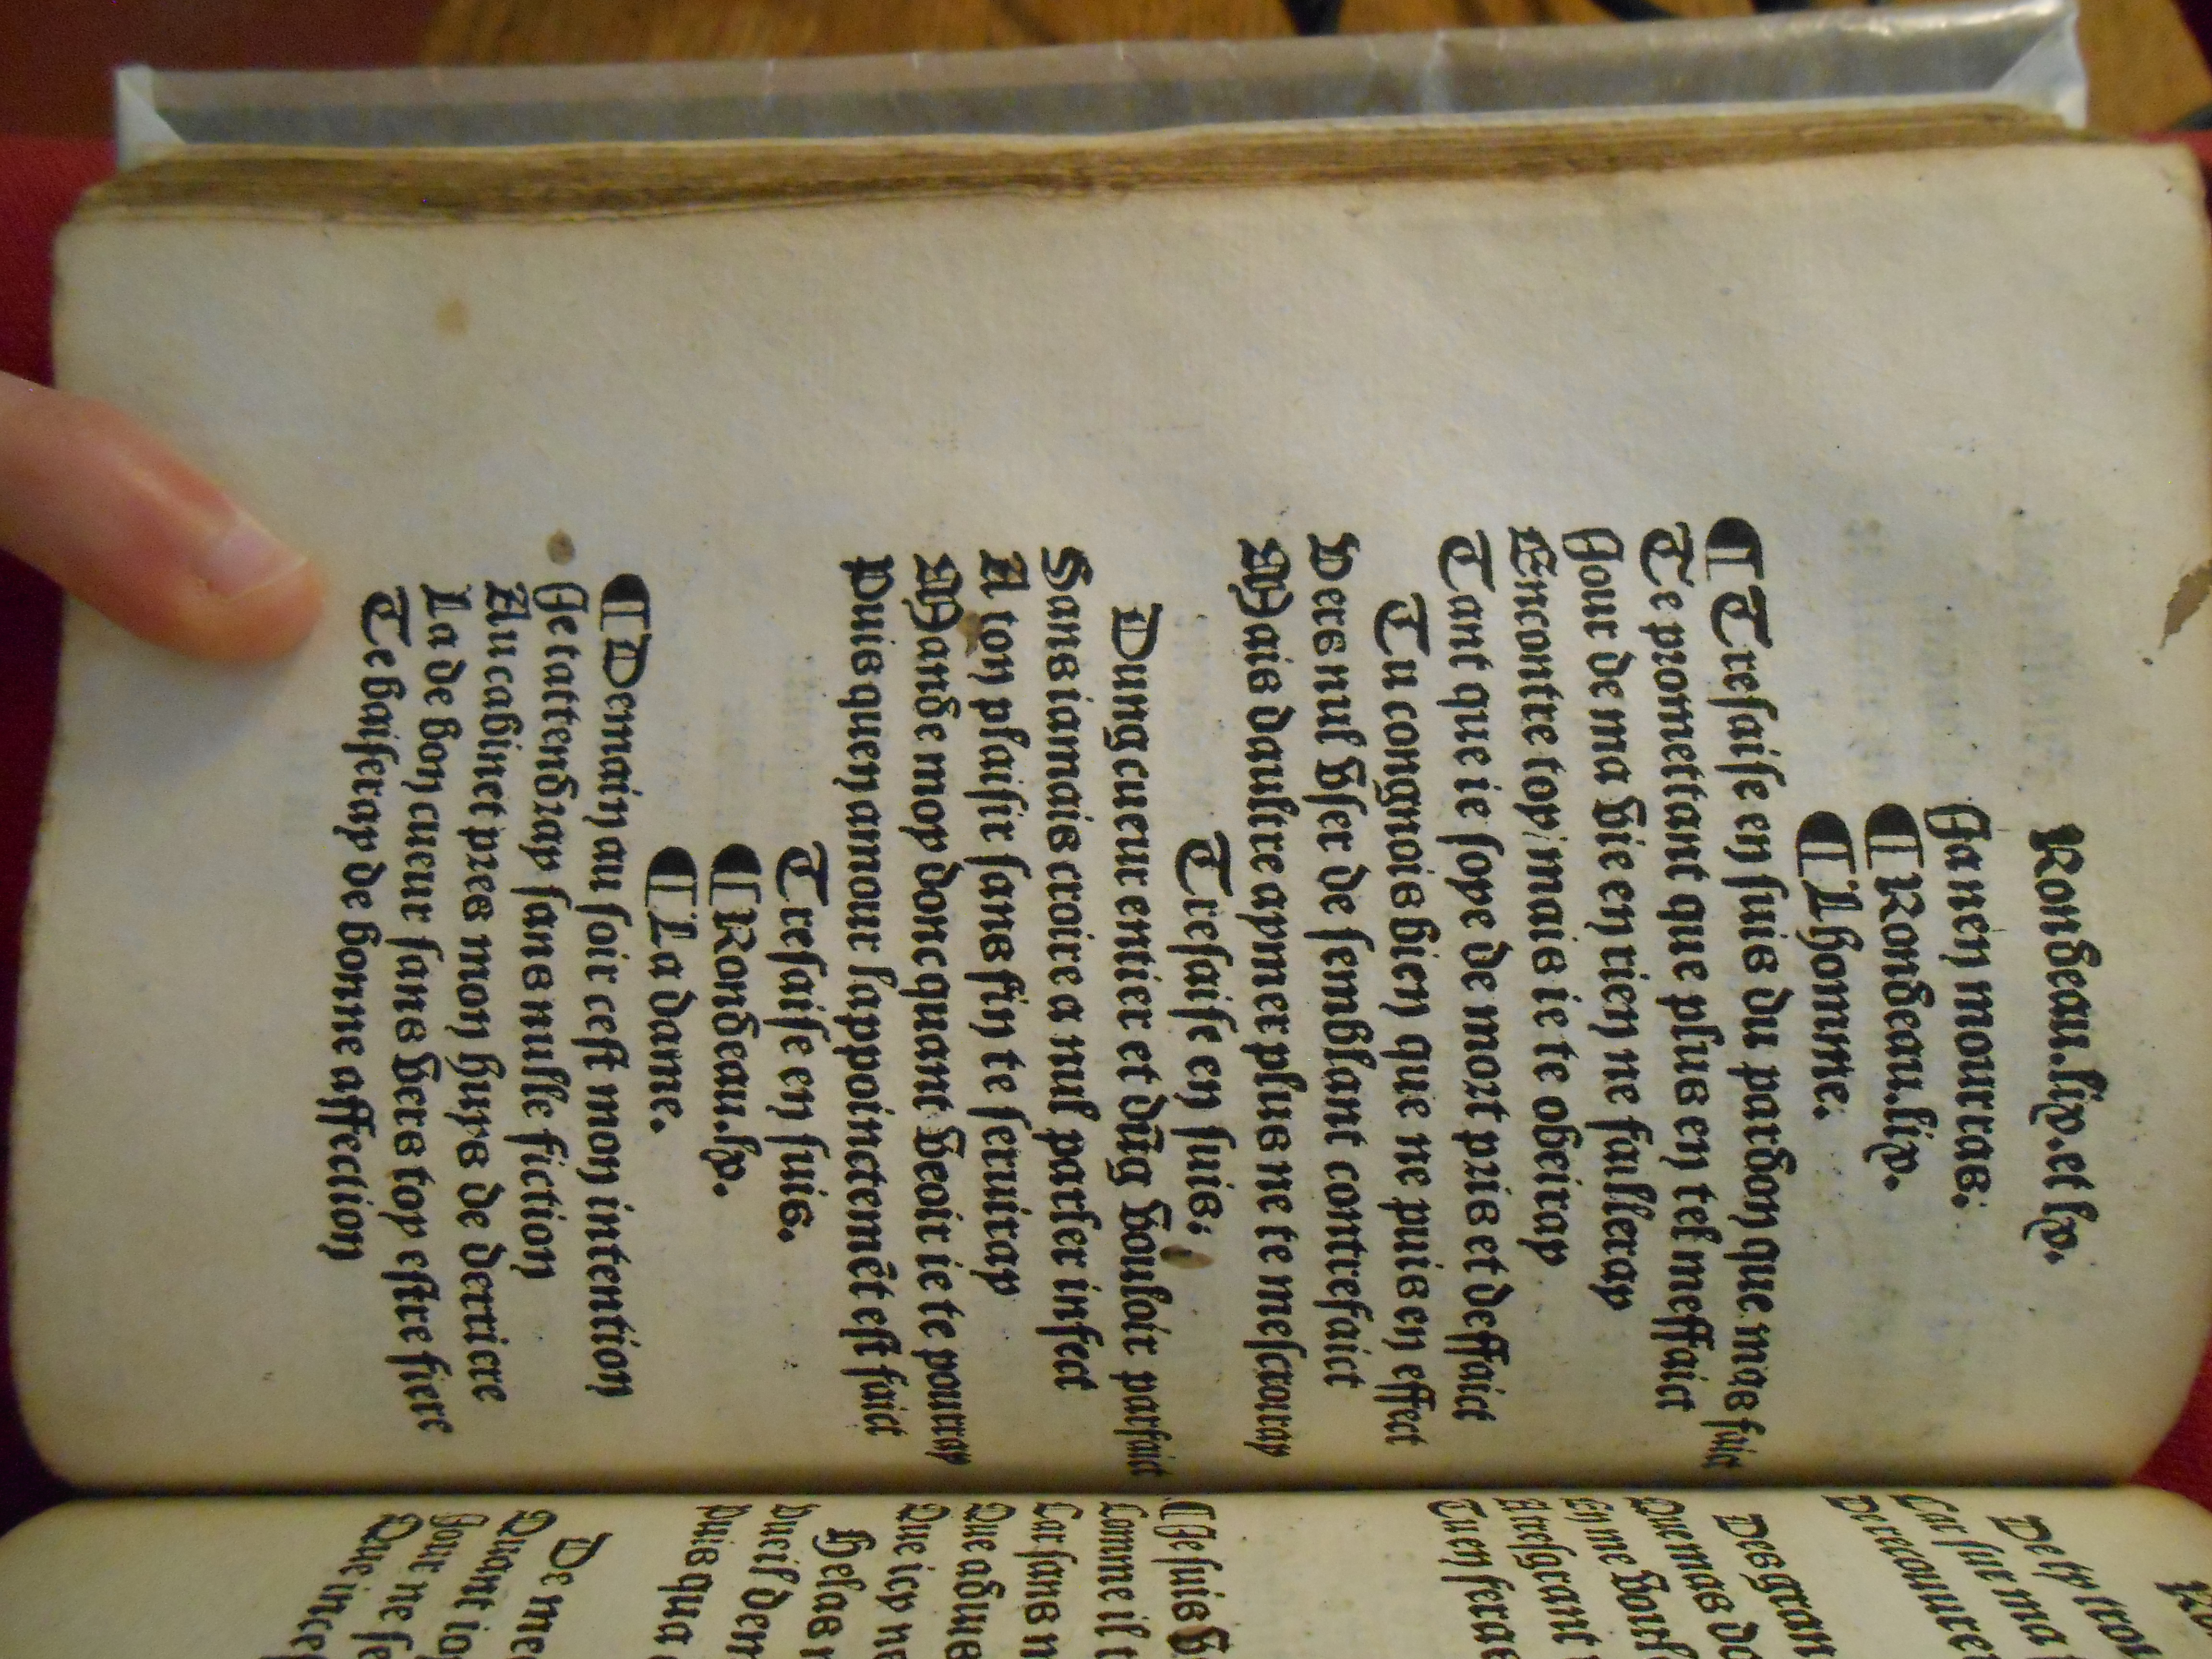 Rondeau.lix.et lx.
Ja nen mourras.
¶ Rondeau.lix.
¶ Lhomme.
¶ Tresaise en suis du pardon que mas faict
Te promettant que plus en tel meffaict
Jour de ma vie en rien ne falleray
Encontre toy/mais ie te obeiray
Tant que ie soye de mort pris et deffaict
Tu congnois bien que ne puis en effect
Vers nul vser de semblant contrefaict
Mais daultre aymer plus ne te mescroiray
Tresaise en suis.
Dung cueur entier et dūg vouloir parfaict
Sans iamais croire a nul parler infect
A ton plaisir sans fin te seruiray
Mande moy donc quant veoir ie te pourray
Puis quen amour lappoinctemēt est faict
Tresaise en suis.
¶ Rondeau.lx.
¶ La dame.
¶ Demain au soir cest mon intention
Je tattendray sans nulle fiction
Au cabinet pres mon huys de derriere
La de bon cueur sans vers toy estre fiere
Te baiseray de bonne affection
De
Car
¶ Je suis
Comme il
Car sans
Puis qua
Quant
Jour ne